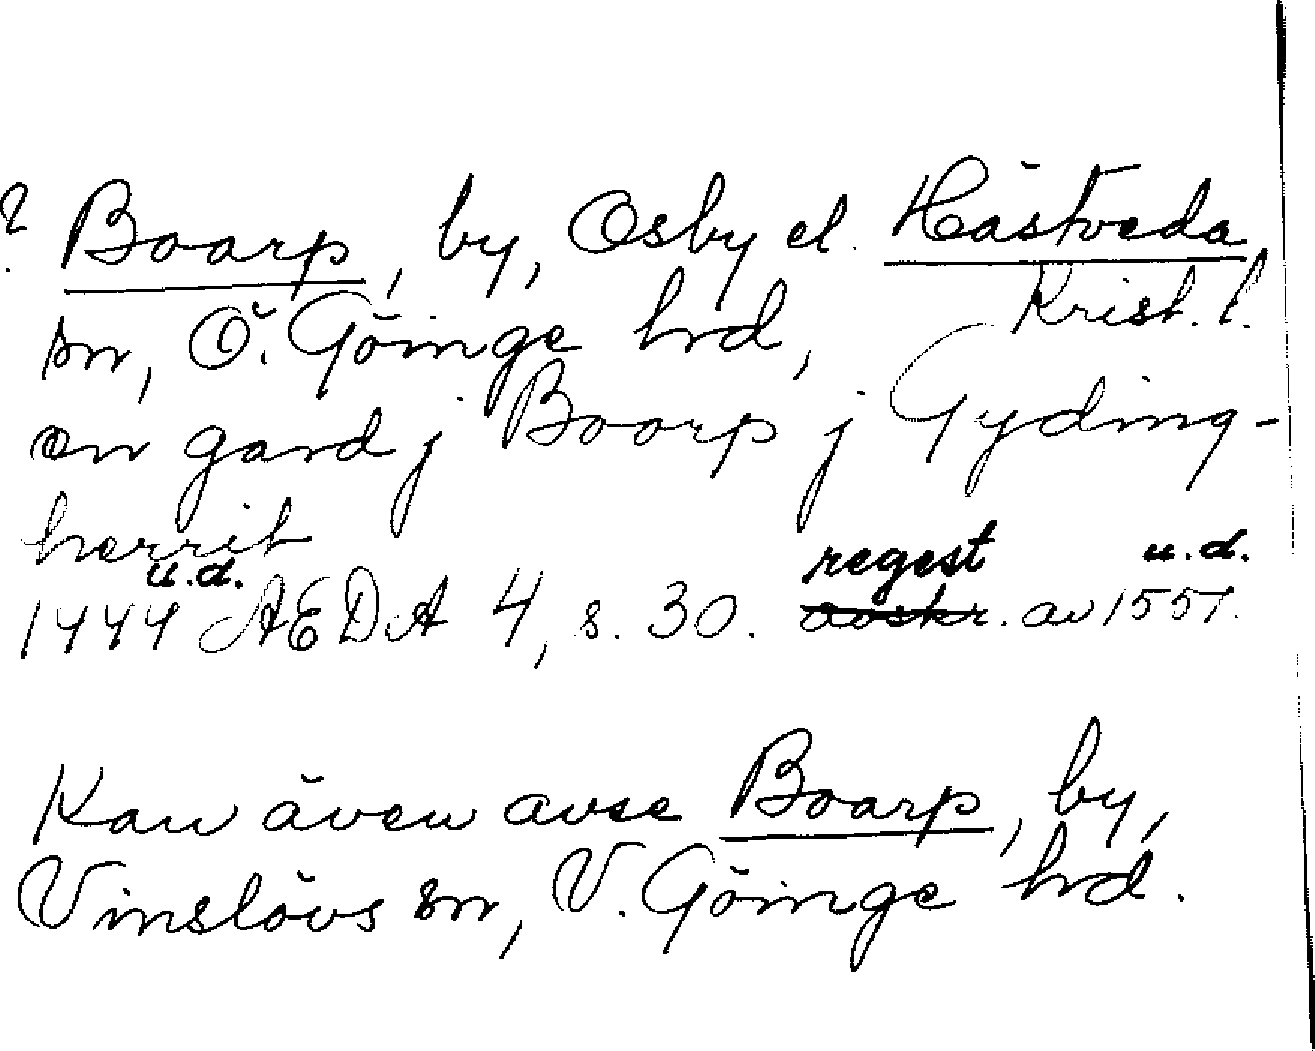 ? Boarp, by, Osby el. Hästveda
sn, Ö. Göinge hrd, Krist. l.
en gard j Boorp j Gyding-
herrit
1444 u.d. AEDA 4, s. 30. regest avskr. av 1551. u.d.
Kan även avse Boarp, by,
Vinslövs sn, V. Göinge hrd.